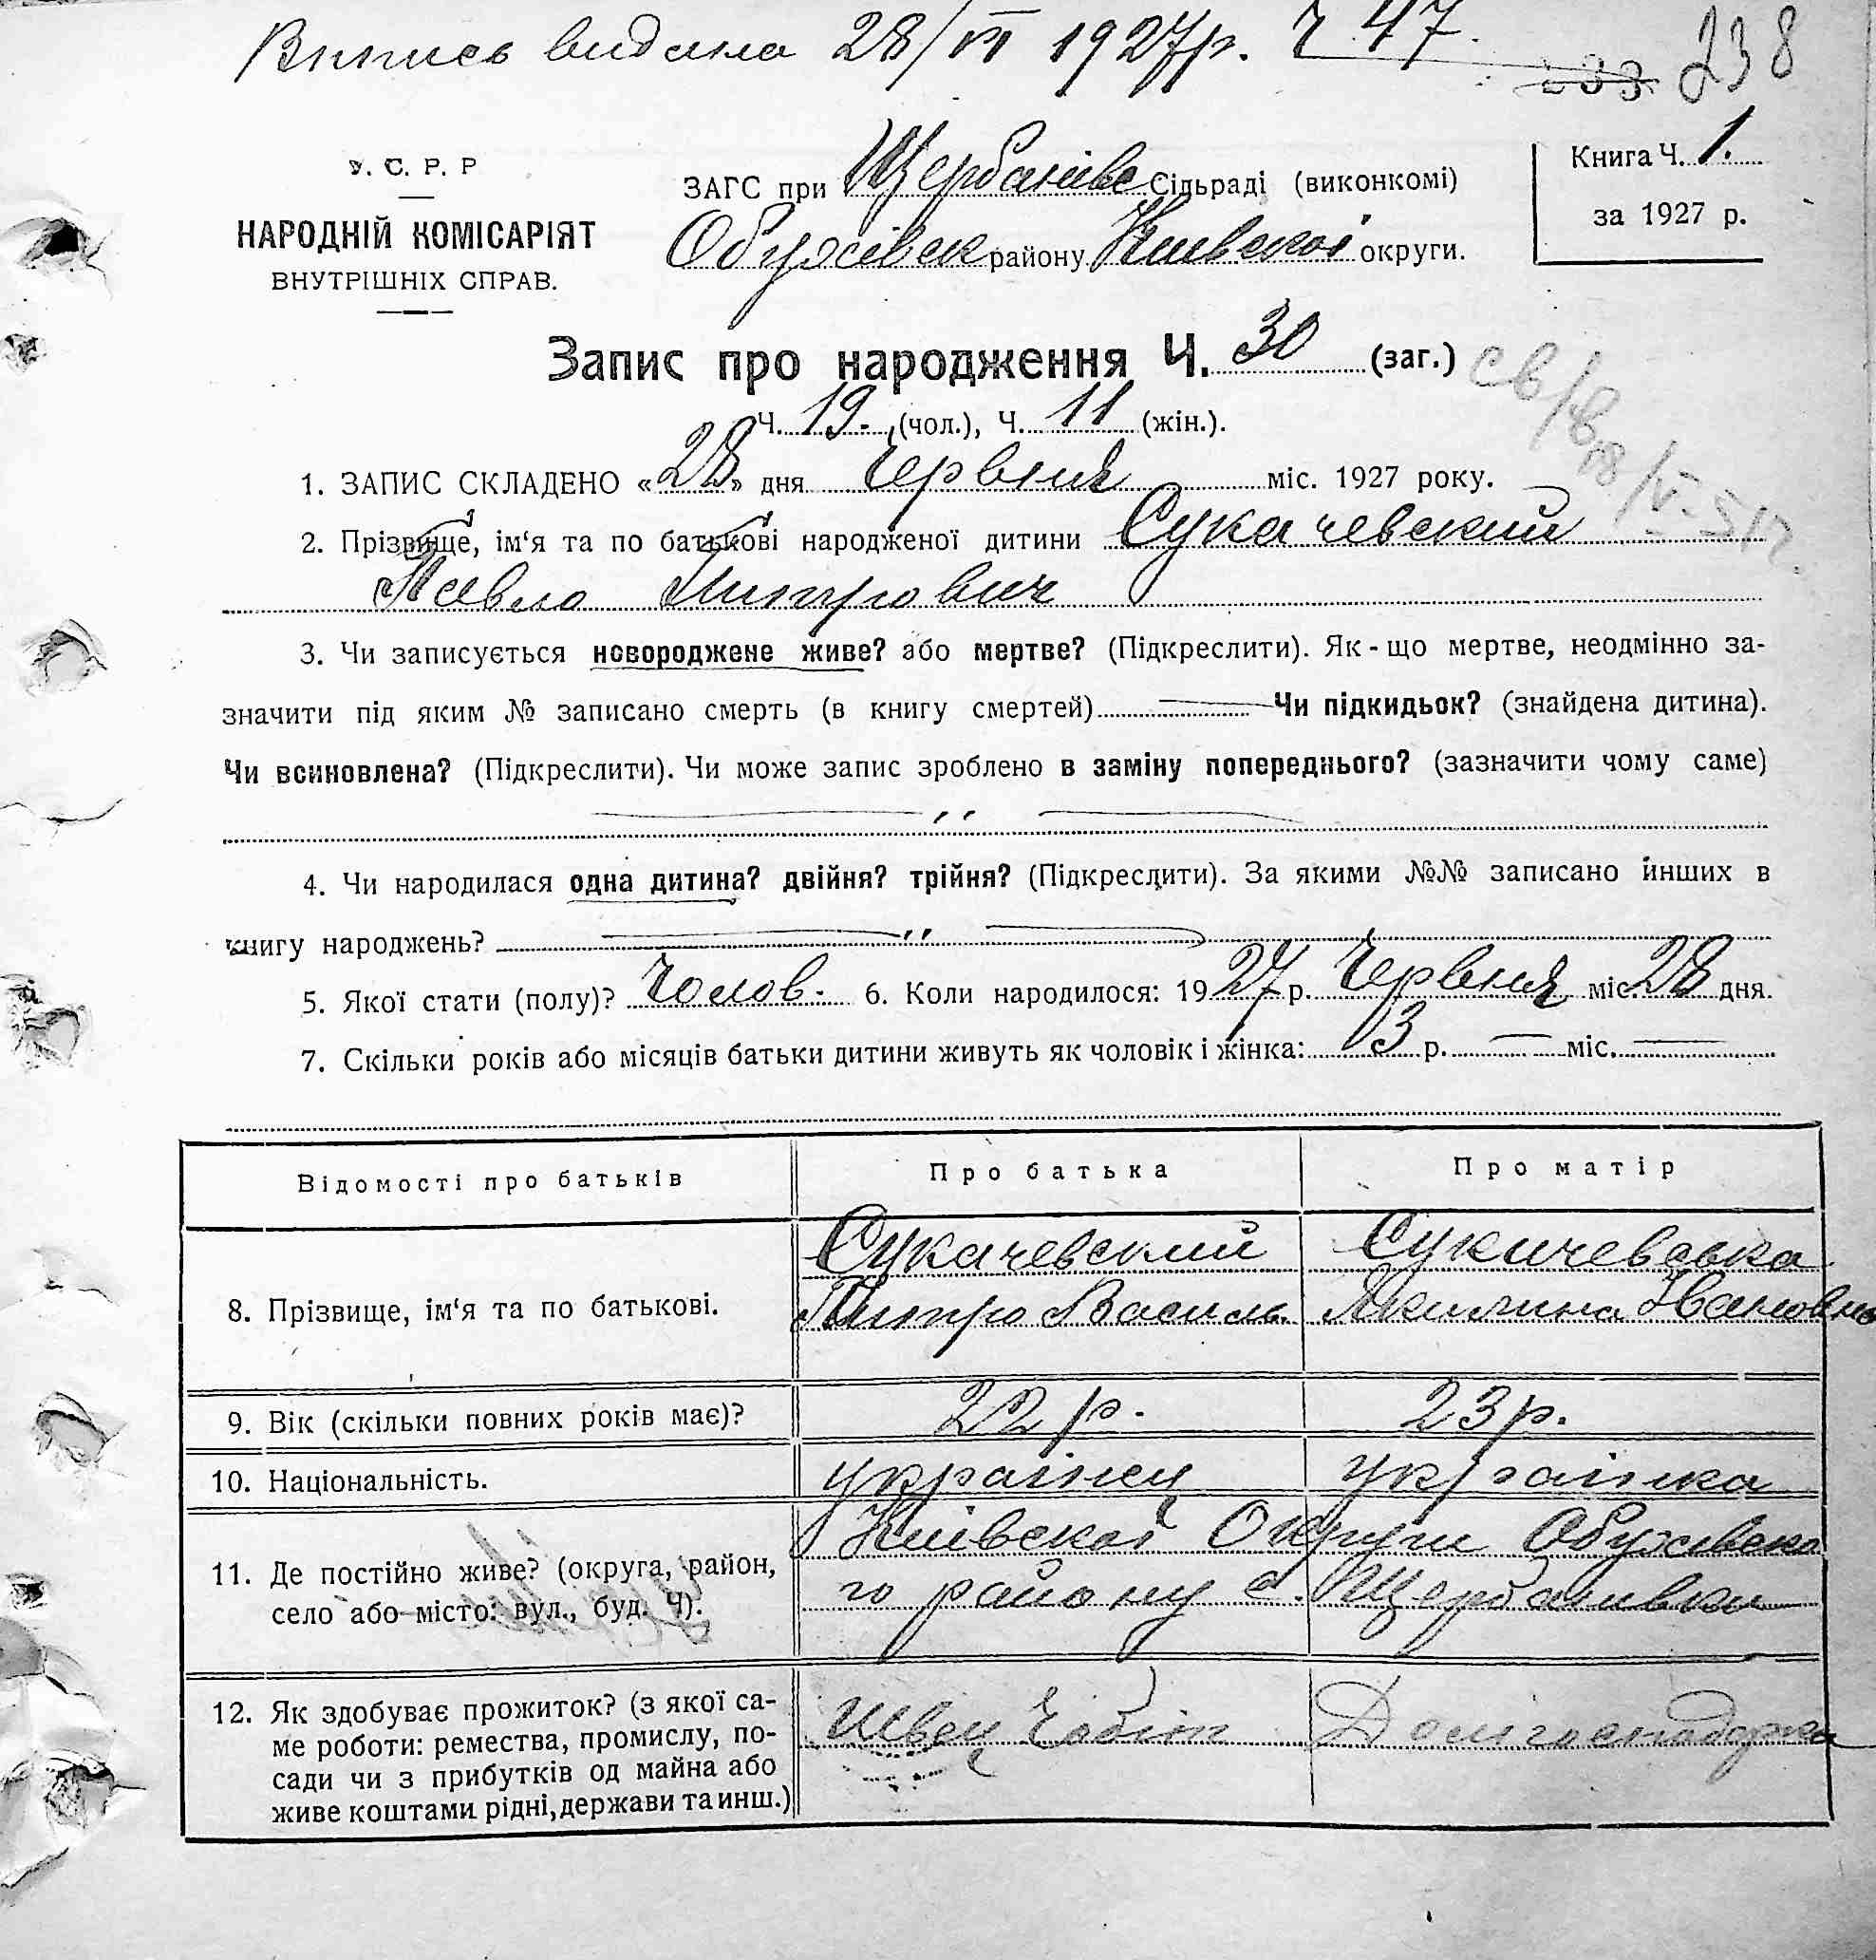 Выпись видана 28/VI 1927р. Ч 47.
233 238
У. С. Р. Р
НАРОДНІЙ КОМІСАРІЯТ
ВНУТРІШНІХ СПРАВ.
ЗАГС при Щербанівс Сільраді (виконкомі)
Обухівськ району Київської округи.
Книга Ч. 1.
за 1927 р.
Запис про народження Ч. 30 (заг.)
Ч. 19. (чол.), Ч. 11 (жін.).
1. ЗАПИС СКЛАДЕНО «28» дня Червня міс. 1927 року.
2. Прізвище, ім‘я та по батькові народженої дитини Сукачевский
Павло Питрович
3. Чи записується новороджене живе? або мертве? (Підкреслити). Як-що мертве, неодмінно за-
значити під яким № записано смерть (в книгу смертей) — Чи підкидьок? (знайдена дитина).
Чи всиновлена? (Підкреслити). Чи може запис зроблено в заміну попереднього? (зазначити чому саме)
— „ —
4. Чи народилася одна дитина? двійня? трійня? (Підкреслити). За якими №№ записано инших в
книгу народжень? — „ —
5. Якої стати (полу)? Чолов. 6. Коли народилося: 1927 р. Червня міс. 28 дня.
7. Скільки років або місяців батьки дитини живуть як чоловік і жінка: 3 р. — міс. —
Відомості про батьків Про батька Про матір
8. Прізвище, ім‘я та по батькові. Сукачевский Сукачевська
Питро Василь. Акилина Ивановна
9. Вік (скільки повних років має)? 22 р. 23 р.
10. Національність. українец українка
11. Де постійно живе? (округа, район, Київскої Округи Обухівско
село або місто: вул., буд. Ч). го району с. Щербанивки
12. Як здобуває прожиток? (з якої са-
ме роботи: ремества, промислу, по- Швец Чобіт Домігосподорка
сади чи з прибутків од майна або
живе коштами рідні, держави та инш.)